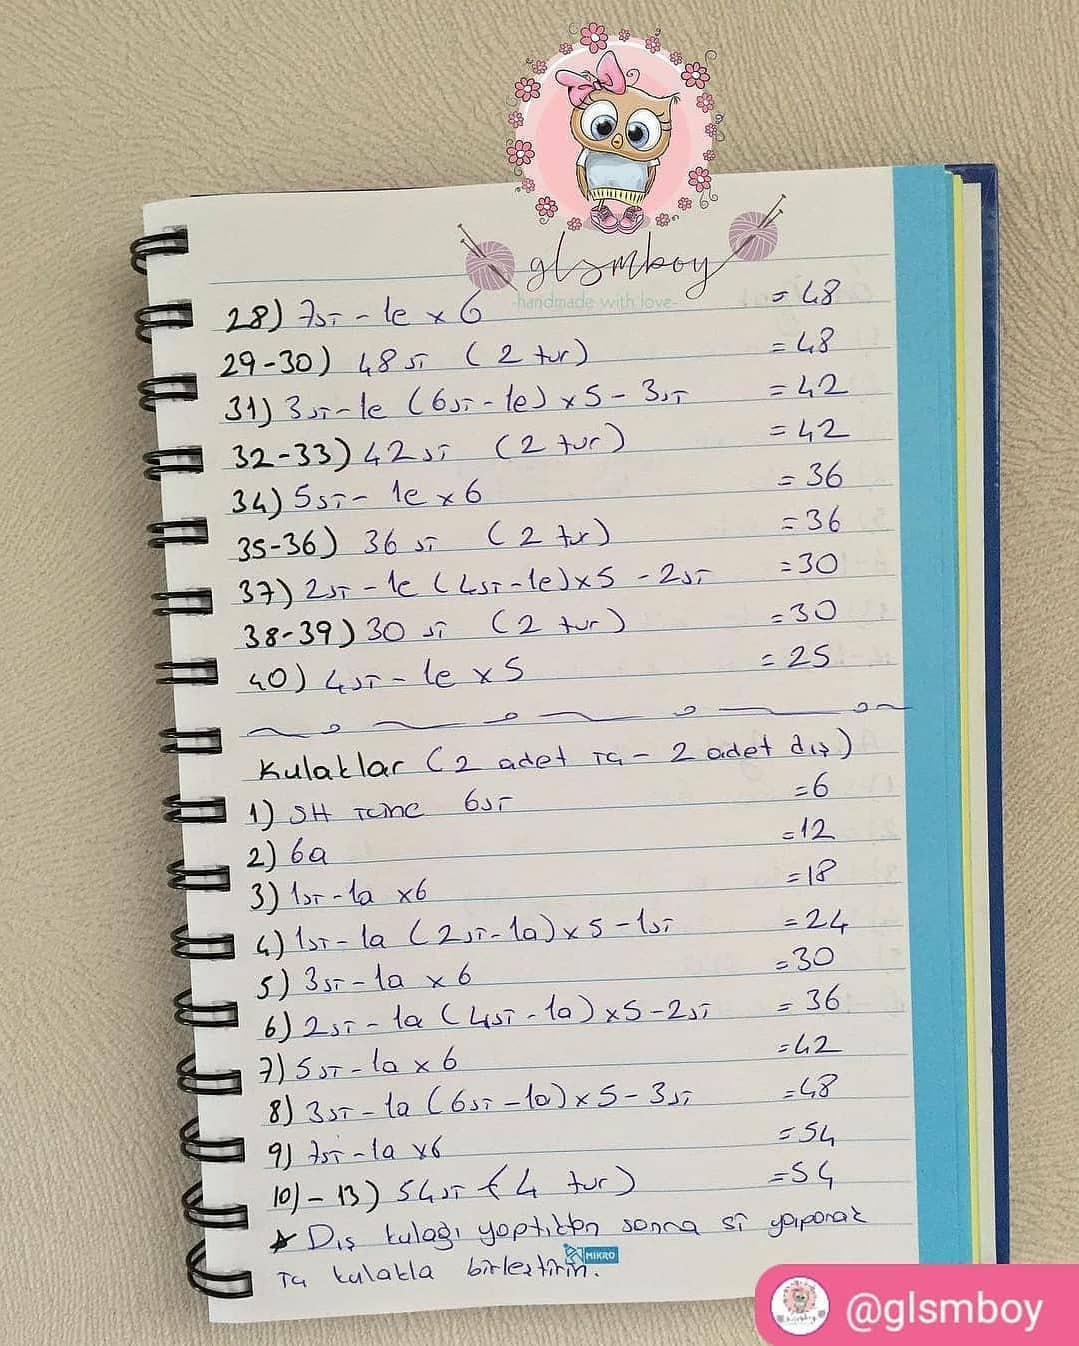 glsmboy
-handmade with love-
28) 7sı - 1e x 6 = 48
29-30) 48 sı ( 2 tur) = 48
31) 3sı - 1e (6sı - 1e) x 5 - 3sı = 42
32-33) 42 sı ( 2 tur) = 42
34) 5sı - 1e x 6 = 36
35-36) 36 sı ( 2 tur) = 36
37) 2sı - 1e (4sı - 1e) x 5 - 2sı = 30
38-39) 30 sı ( 2 tur) = 30
40) 4sı - 1e x 5 = 25
Kulaklar (2 adet iç - 2 adet dış)
1) SH içine 6sı = 6
2) 6a = 12
3) 1sı - 1a x6 = 18
4) 1sı - 1a (2sı - 1a) x 5 - 1sı = 24
5) 3sı - 1a x 6 = 30
6) 2sı - 1a (4sı - 1a) x 5 - 2sı = 36
7) 5sı - 1a x 6 = 42
8) 3sı - 1a (6sı - 1a) x 5 - 3sı = 48
9) 7sı - 1a x6 = 54
10) - 13) 54sı ( 4 tur) = 54
★ Dış kulağı yaptıktan sonra sı yaparak
iç kulakla birleştirin.
MIKRO
@glsmboy